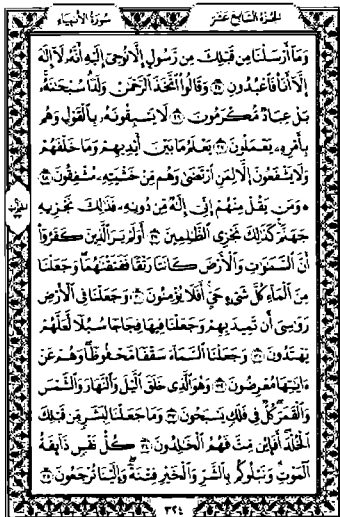 الجزء السابع عشر
سورة الأنبياء
وَمَآ أَرْسَلْنَا مِن قَبْلِكَ مِن رَّسُولٍ إِلَّا نُوحِىٓ إِلَيْهِ أَنَّهُۥ لَآ إِلَٰهَ
إِلَّآ أَنَا۠ فَٱعْبُدُونِ ۝٢٥ وَقَالُوا۟ ٱتَّخَذَ ٱلرَّحْمَٰنُ وَلَدًا ۗ سُبْحَٰنَهُۥ ۚ
بَلْ عِبَادٌ مُّكْرَمُونَ ۝٢٦ لَا يَسْبِقُونَهُۥ بِٱلْقَوْلِ وَهُم
بِأَمْرِهِۦ يَعْمَلُونَ ۝٢٧ يَعْلَمُ مَا بَيْنَ أَيْدِيهِمْ وَمَا خَلْفَهُمْ
وَلَا يَشْفَعُونَ إِلَّا لِمَنِ ٱرْتَضَىٰ وَهُم مِّنْ خَشْيَتِهِۦ مُشْفِقُونَ ۝٢٨
۞ وَمَن يَقُلْ مِنْهُمْ إِنِّىٓ إِلَٰهٌ مِّن دُونِهِۦ فَذَٰلِكَ نَجْزِيهِ
جَهَنَّمَ ۚ كَذَٰلِكَ نَجْزِى ٱلظَّٰلِمِينَ ۝٢٩ أَوَلَمْ يَرَ ٱلَّذِينَ كَفَرُوٓا۟
أَنَّ ٱلسَّمَٰوَٰتِ وَٱلْأَرْضَ كَانَتَا رَتْقًا فَفَتَقْنَٰهُمَا ۖ وَجَعَلْنَا
مِنَ ٱلْمَآءِ كُلَّ شَىْءٍ حَىٍّ ۖ أَفَلَا يُؤْمِنُونَ ۝٣٠ وَجَعَلْنَا فِى ٱلْأَرْضِ
رَوَٰسِىَ أَن تَمِيدَ بِهِمْ وَجَعَلْنَا فِيهَا فِجَاجًا سُبُلًا لَّعَلَّهُمْ
يَهْتَدُونَ ۝٣١ وَجَعَلْنَا ٱلسَّمَآءَ سَقْفًا مَّحْفُوظًا ۖ وَهُمْ عَنْ
ءَايَٰتِهَا مُعْرِضُونَ ۝٣٢ وَهُوَ ٱلَّذِى خَلَقَ ٱلَّيْلَ وَٱلنَّهَارَ وَٱلشَّمْسَ
وَٱلْقَمَرَ ۖ كُلٌّ فِى فَلَكٍ يَسْبَحُونَ ۝٣٣ وَمَا جَعَلْنَا لِبَشَرٍ مِّن قَبْلِكَ
ٱلْخُلْدَ ۖ أَفَإِي۟ن مِّتَّ فَهُمُ ٱلْخَٰلِدُونَ ۝٣٤ كُلُّ نَفْسٍ ذَآئِقَةُ
ٱلْمَوْتِ ۗ وَنَبْلُوكُم بِٱلشَّرِّ وَٱلْخَيْرِ فِتْنَةً ۖ وَإِلَيْنَا تُرْجَعُونَ ۝٣٥
٣٢٤